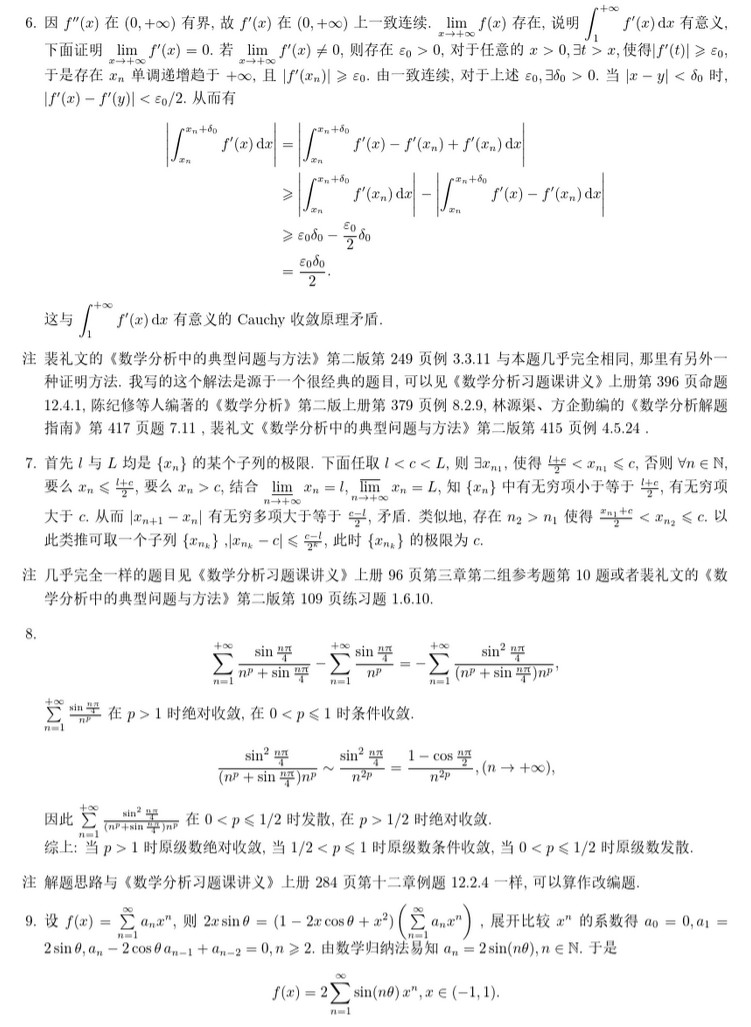 6. 因 f″(x) 在 (0, +∞) 有界, 故 f′(x) 在 (0, +∞) 上一致连续. lim_{x→+∞} f(x) 存在, 说明 ∫_1^{+∞} f′(x) dx 有意义,
下面证明 lim_{x→+∞} f′(x) = 0. 若 lim_{x→+∞} f′(x) ≠ 0, 则存在 ε₀ > 0, 对于任意的 x > 0, ∃t > x, 使得|f′(t)| ⩾ ε₀,
于是存在 x_n 单调递增趋于 +∞, 且 |f′(x_n)| ⩾ ε₀. 由一致连续, 对于上述 ε₀, ∃δ₀ > 0. 当 |x − y| < δ₀ 时,
|f′(x) − f′(y)| < ε₀/2. 从而有
|∫_{x_n}^{x_n+δ₀} f′(x) dx| = |∫_{x_n}^{x_n+δ₀} f′(x) − f′(x_n) + f′(x_n) dx|
⩾ |∫_{x_n}^{x_n+δ₀} f′(x_n) dx| − |∫_{x_n}^{x_n+δ₀} f′(x) − f′(x_n) dx|
⩾ ε₀δ₀ − \frac{ε₀}{2}δ₀
= \frac{ε₀δ₀}{2}.
这与 ∫_1^{+∞} f′(x) dx 有意义的 Cauchy 收敛原理矛盾.
注 裴礼文的《数学分析中的典型问题与方法》第二版第 249 页例 3.3.11 与本题几乎完全相同, 那里有另外一
种证明方法. 我写的这个解法是源于一个很经典的题目, 可以见《数学分析习题课讲义》上册第 396 页命题
12.4.1, 陈纪修等人编著的《数学分析》第二版上册第 379 页例 8.2.9, 林源渠、方企勤编的《数学分析解题
指南》第 417 页题 7.11 , 裴礼文《数学分析中的典型问题与方法》第二版第 415 页例 4.5.24 .
7. 首先 l 与 L 均是 {x_n} 的某个子列的极限. 下面任取 l < c < L, 则 ∃x_{n_1}, 使得 \frac{l+c}{2} < x_{n_1} ⩽ c, 否则 ∀n ∈ ℕ,
要么 x_n ⩽ \frac{l+c}{2}, 要么 x_n > c, 结合 \underline{lim}_{n→+∞} x_n = l, \overline{lim}_{n→+∞} x_n = L, 知 {x_n} 中有无穷项小于等于 \frac{l+c}{2}, 有无穷项
大于 c. 从而 |x_{n+1} − x_n| 有无穷多项大于等于 \frac{c−l}{2}, 矛盾. 类似地, 存在 n₂ > n₁ 使得 \frac{x_{n_1}+c}{2} < x_{n_2} ⩽ c. 以
此类推可取一个子列 {x_{n_k}} ,|x_{n_k} − c| ⩽ \frac{c−l}{2^k}, 此时 {x_{n_k}} 的极限为 c.
注 几乎完全一样的题目见《数学分析习题课讲义》上册 96 页第三章第二组参考题第 10 题或者裴礼文的《数
学分析中的典型问题与方法》第二版第 109 页练习题 1.6.10.
8.
∑_{n=1}^{+∞} \frac{sin \frac{nπ}{4}}{n^p + sin \frac{nπ}{4}} − ∑_{n=1}^{+∞} \frac{sin \frac{nπ}{4}}{n^p} = − ∑_{n=1}^{+∞} \frac{sin² \frac{nπ}{4}}{(n^p + sin \frac{nπ}{4})n^p},
∑_{n=1}^{+∞} \frac{sin \frac{nπ}{4}}{n^p} 在 p > 1 时绝对收敛, 在 0 < p ⩽ 1 时条件收敛.
\frac{sin² \frac{nπ}{4}}{(n^p + sin \frac{nπ}{4})n^p} ∼ \frac{sin² \frac{nπ}{4}}{n^{2p}} = \frac{1 − cos \frac{nπ}{2}}{n^{2p}}, (n → +∞),
因此 ∑_{n=1}^{+∞} \frac{sin² \frac{nπ}{4}}{(n^p+sin \frac{nπ}{4})n^p} 在 0 < p ⩽ 1/2 时发散, 在 p > 1/2 时绝对收敛.
综上: 当 p > 1 时原级数绝对收敛, 当 1/2 < p ⩽ 1 时原级数条件收敛, 当 0 < p ⩽ 1/2 时原级数发散.
注 解题思路与《数学分析习题课讲义》上册 284 页第十二章例题 12.2.4 一样, 可以算作改编题.
9. 设 f(x) = ∑_{n=1}^{∞} a_n x^n, 则 2x sin θ = (1 − 2x cos θ + x²)(∑_{n=1}^{∞} a_n x^n) , 展开比较 x^n 的系数得 a₀ = 0, a₁ =
2 sin θ, a_n − 2 cos θ a_{n−1} + a_{n−2} = 0, n ⩾ 2. 由数学归纳法易知 a_n = 2 sin(nθ), n ∈ ℕ. 于是
f(x) = 2 ∑_{n=1}^{∞} sin(nθ) x^n, x ∈ (−1, 1).